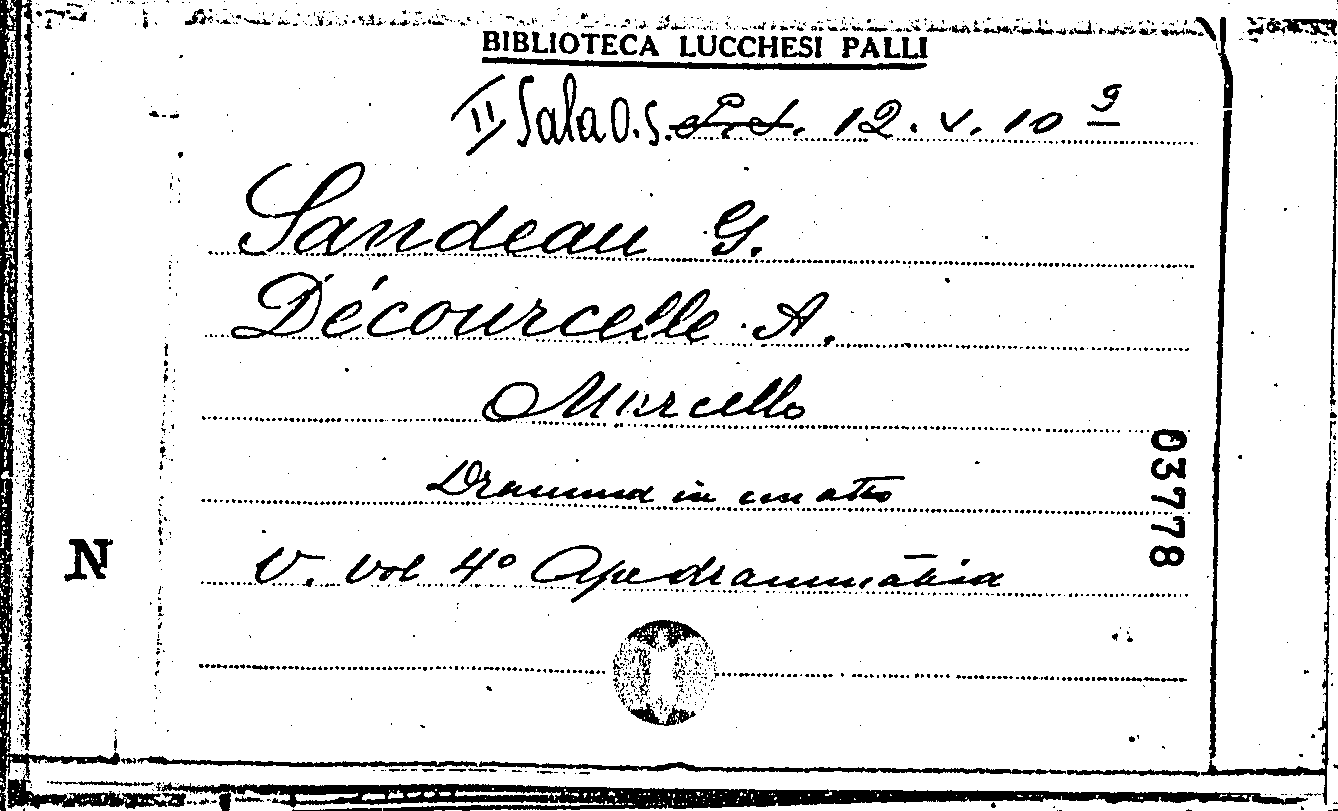 BIBLIOTECA LUCCHESI PALLI
II Sala O.S. 12. V. 10 9
Sandeau G.
Décourcelle A.
Marcello
Dramma in un atto
V. vol 4° Ape drammatica
03778
N